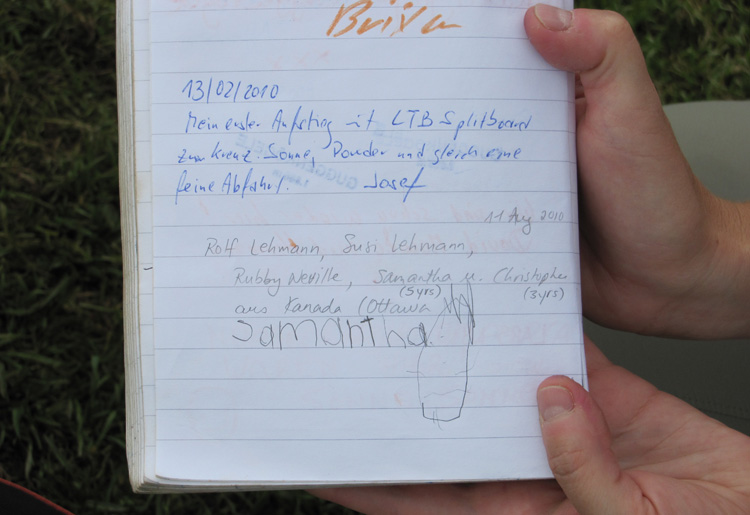 Brixn
13/02/2010
Mein erster Aufstieg mit LTB Splitboard
zum Kreuz. Sonne, Powder und gleich eine
feine Abfahrt. Josef
11 Aug 2010
Rolf Lehmann, Susi Lehmann,
Rubby Neville, Samantha u. Christopher
(5yrs) (3yrs)
aus Kanada (Ottawa
Samantha